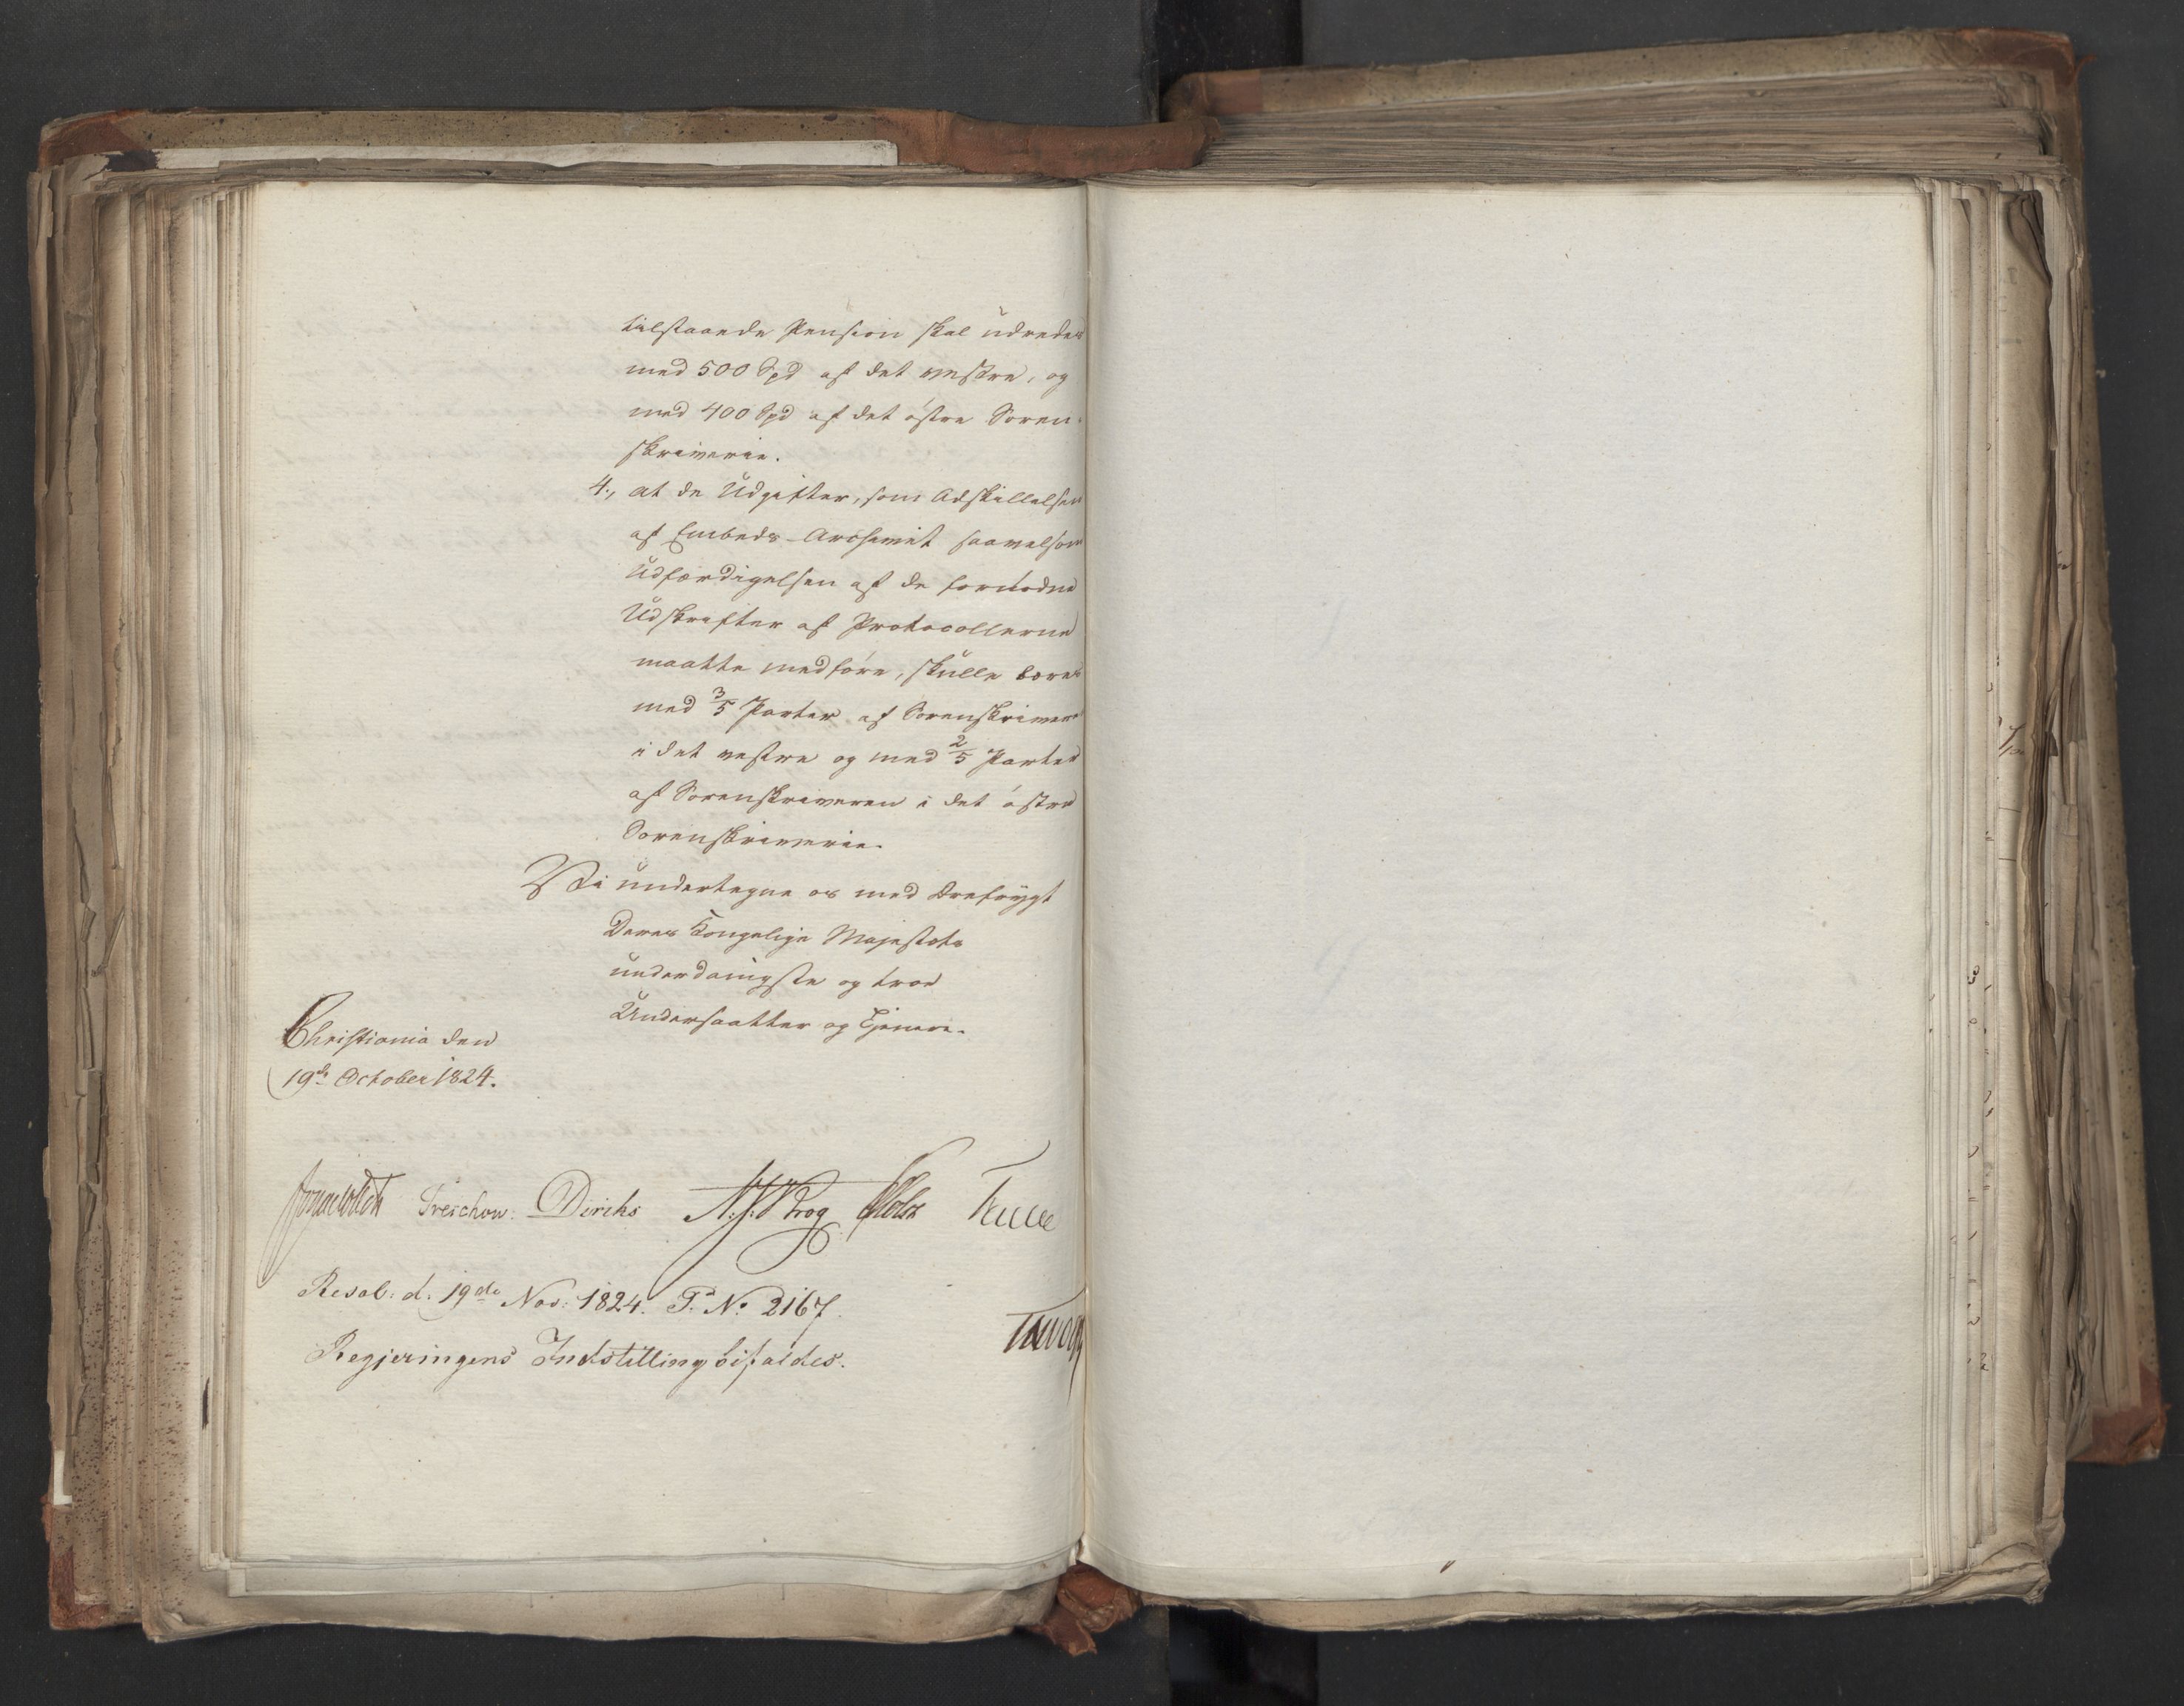 tilstaaende Pension skal udredes
med 500 Spd af det vestre, og
med 400 Spd af det østre Soren-
skriverie.
4., at de Udgifter, som Adskillelsen
af Embeds-Archivet saavelsom
Udfærdigelsen af de fornødne
Udskrifter af Protocollerne
maatte medføre, skulle bæres
med 3/5 Parter af Sorenskriveren
i det vestre og med 2/5 Parter
af Sorenskriveren i det østre
Sorenskriverie.
Vi undertegne os med Ærefrygt
Deres Kongelige Majestæts
underdanigste og troe
Undersaatter og Tjenere.
Christiania den
19de October 1824.
Treschow. Diriks N. J. Krog
Resol: d. 19de Nov: 1824. P. No 2167.
Regjeringens Indstilling bifaldes.